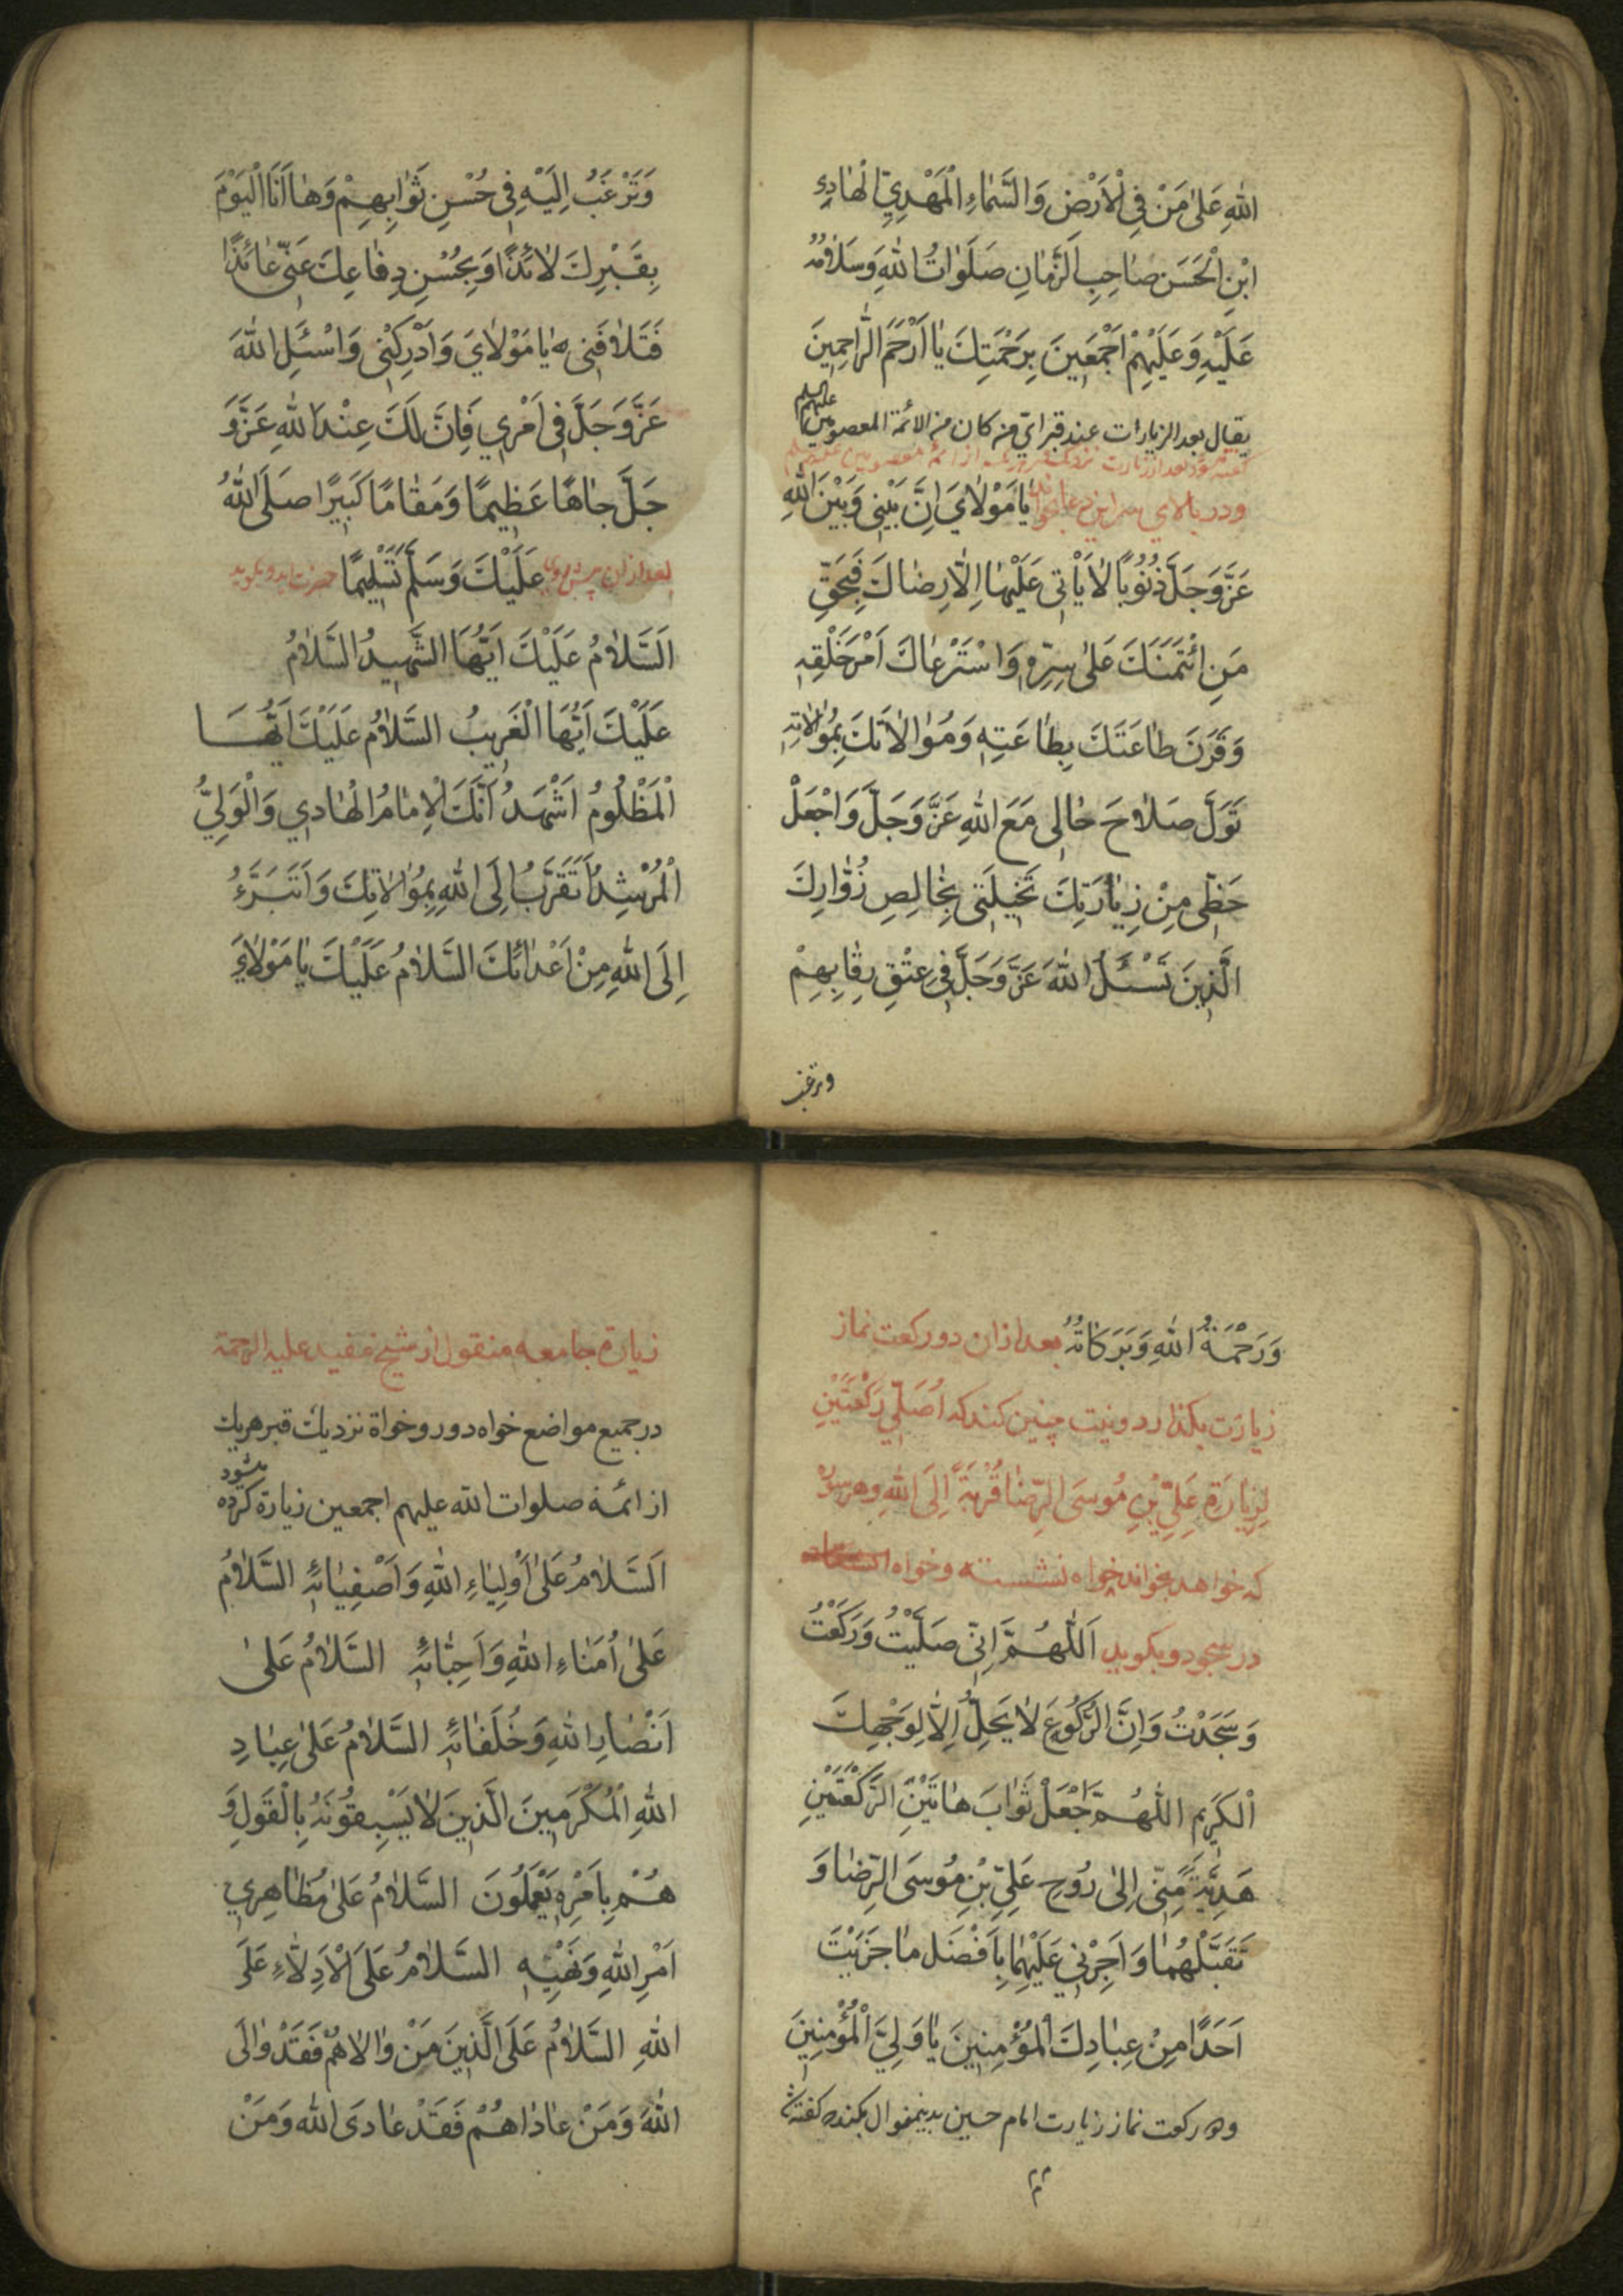 اللهِ عَلىٰ مَنْ فِي الْاَرْضِ وَالسَّمٰاءِ الْمَهْدِيِّ الْهٰادِي
ابْنِ الْحَسَنِ صٰاحِبِ الزَّمٰانِ صَلَوٰاتُ اللهِ وَسَلٰامُهُ
عَلَيْهِ وَعَلَيْهِمْ اَجْمَعِينَ بِرَحْمَتِكَ يٰا اَرْحَمَ الرّٰاحِمِينَ
يقال بعد الزيارات عند قبر اي من كان من الائمة المعصومين عليهم السلم
ودر بالاي سر اين دعا بخواند يٰا مَوْلٰايَ اِنَّ بَيْنِي وَبَيْنَ اللهِ
عَزَّ وَجَلَّ ذُنُوبًا لٰا يَأْتِي عَلَيْهٰا اِلّٰا رِضٰاكَ فَبِحَقِّ
مَنِ ائْتَمَنَكَ عَلىٰ سِرِّهِ وَاسْتَرْعٰاكَ اَمْرَ خَلْقِهِ
وَقَرَنَ طٰاعَتَكَ بِطٰاعَتِهِ وَمُوٰالٰاتَكَ بِمُوٰالٰاتِهِ
تَوَلَّ صَلٰاحَ حٰالِي مَعَ اللهِ عَزَّ وَجَلَّ وَاجْعَلْ
حَظِّي مِنْ زِيٰارَتِكَ تَخْيلَتِي بِخٰالِصِ زُوّٰارِكَ
الَّذِينَ تَسْئَلُ اللهَ عَزَّ وَجَلَّ فِي عِتْقِ رِقٰابِهِمْ
وترغب
وَتَرْغَبُ اِلَيْهِ فِي حُسْنِ ثَوٰابِهِمْ وَهٰا اَنَا الْيَوْمَ
بِقَبْرِكَ لٰائِذًا وَبِحُسْنِ دِفٰاعِكَ عَنِّي عٰائِذًا
فَتَلٰافَنِي يٰا مَوْلٰايَ وَاَدْرِكْنِي وَاسْئَلِ اللهَ
عَزَّ وَجَلَّ فِي اَمْرِي فَاِنَّ لَكَ عِنْدَ اللهِ عَزَّ وَ
جَلَّ جٰاهًا عَظِيمًا وَمَقٰامًا كَبِيرًا صَلَّى اللهُ
عَلَيْكَ وَسَلَّمَ تَسْلِيمًا بعد ازان پيش روي حضرت ايد وبگويد
اَلسَّلٰامُ عَلَيْكَ اَيُّهَا الشَّهِيدُ السَّلٰامُ
عَلَيْكَ اَيُّهَا الْغَرِيبُ السَّلٰامُ عَلَيْكَ اَيُّهَا
الْمَظْلُومُ اَشْهَدُ اَنَّكَ الْاِمٰامُ الْهٰادِي وَالْوَلِيُّ
الْمُرْشِدُ اَتَقَرَّبُ اِلَى اللهِ بِمُوٰالٰاتِكَ وَاَتَبَرَّءُ
اِلَى اللهِ مِنْ اَعْدٰائِكَ السَّلٰامُ عَلَيْكَ يٰا مَوْلٰايَ
وَرَحْمَةُ اللهِ وَبَرَكٰاتُهُ بعد ازان دو ركعت نماز
زيارت بگذارد ونيت چنين كند كه اُصَلِّي رَكْعَتَيْنِ
لِزِيٰارَةِ عَلِيِّ بْنِ مُوسَى الرِّضٰا قُرْبَةً اِلَى اللهِ وهر سوره
كه خواهد بخواند خواه نشسته وخواه
در سجود وبگويد اَللّٰهُمَّ اِنِّي صَلَّيْتُ وَرَكَعْتُ
وَسَجَدْتُ وَاِنَّ الرُّكُوعَ لٰا يَحِلُّ اِلّٰا لِوَجْهِكَ
الْكَرِيمِ اللّٰهُمَّ اجْعَلْ ثَوٰابَ هٰاتَيْنِ الرَّكْعَتَيْنِ
هَدِيَّةً مِنِّي اِلىٰ رُوحِ عَلِيِّ بْنِ مُوسَى الرِّضٰا وَ
تَقَبَّلْهُمٰا وَاَجِرْنِي عَلَيْهِمٰا بِاَفْضَلِ مٰا جَزَيْتَ
اَحَدًا مِنْ عِبٰادِكَ الْمُؤْمِنِينَ يٰا وَلِيَّ الْمُؤْمِنِينَ
ودو ركعت نماز زيارت امام حسين بدينمنوال بكند كه گفته شد
زيارة جامعه منقول از شيخ مفيد عليه الرحمة
در جميع مواضع خواه دور وخواه نزديك قبر هريك
از ائمه صلوات الله عليهم اجمعين زيارة كرده ميشود
اَلسَّلٰامُ عَلىٰ اَوْلِيٰاءِ اللهِ وَاَصْفِيٰائِهِ السَّلٰامُ
عَلىٰ اُمَنٰاءِ اللهِ وَاَحِبّٰائِهِ السَّلٰامُ عَلىٰ
اَنْصٰارِ اللهِ وَخُلَفٰائِهِ السَّلٰامُ عَلىٰ عِبٰادِ
اللهِ الْمُكْرَمِينَ الَّذِينَ لٰا يَسْبِقُونَهُ بِالْقَوْلِ وَ
هُمْ بِاَمْرِهِ يَعْمَلُونَ السَّلٰامُ عَلىٰ مُظٰاهِرِي
اَمْرِ اللهِ وَنَهْيِهِ السَّلٰامُ عَلَى الْاَدِلّٰاءِ عَلَى
اللهِ السَّلٰامُ عَلَى الَّذِينَ مَنْ وٰالٰاهُمْ فَقَدْ وٰالَى
اللهَ وَمَنْ عٰادٰاهُمْ فَقَدْ عٰادَى اللهَ وَمَنْ